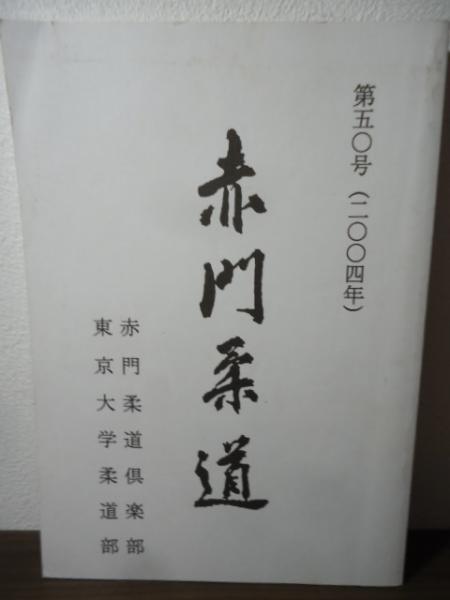 第五〇号（二〇〇四年）
赤門柔道
赤門柔道倶楽部
東京大学柔道部